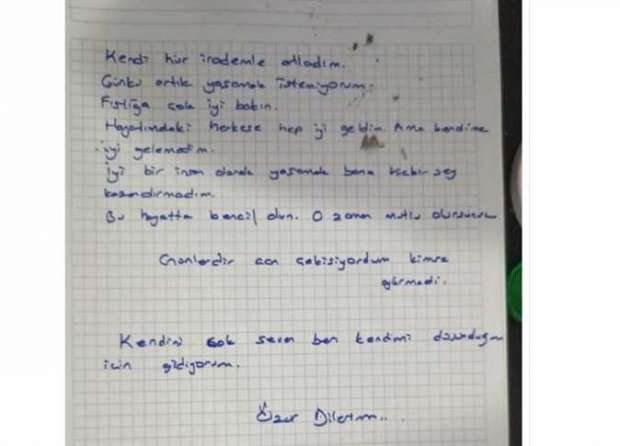 Kendi hür irademle atladım.
Çünkü artık yaşamak istemiyorum.
Fıstığa çok iyi bakın.
Hayatımdaki herkese hep iyi geldim. Ama kendime
iyi gelemedim.
İyi bir insan olarak yaşamak bana hiçbir şey
kazandırmadım.
Bu hayatta bencil olun. O zaman mutlu olursunuz
acı çekiyordum kimse
görmedi.
Kendini çok seven ben kendimi düşündüğüm
için gidiyorum.
Özür Dilerim...